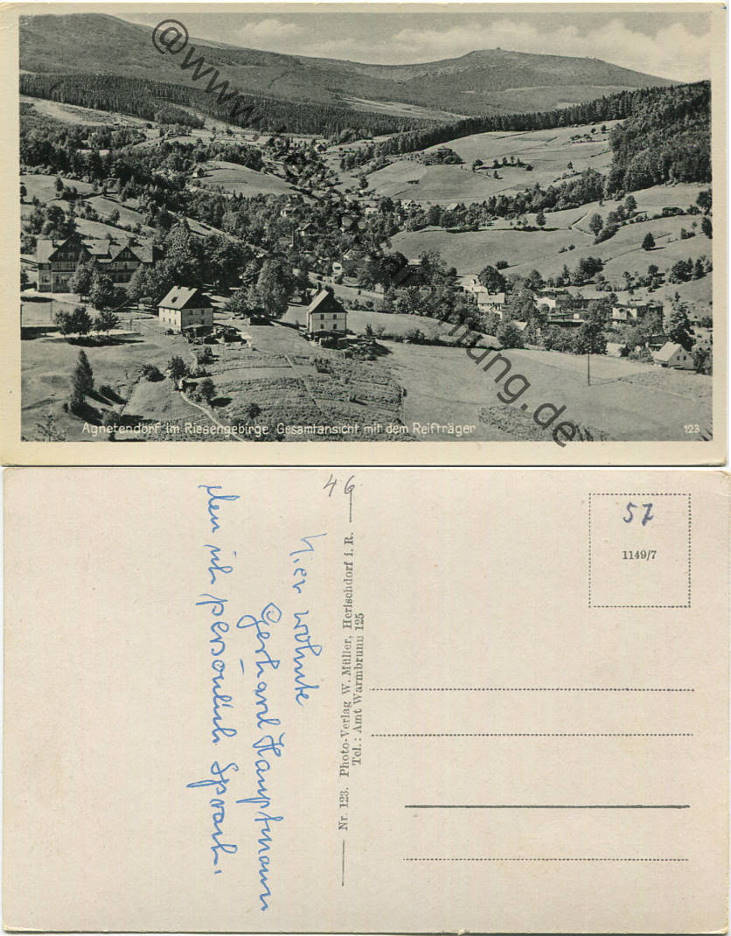 @www.ansichtskartenhandel.de
Agnetendorf im Riesengebirge, Gesamtansicht mit dem Reifträger
123
46
57
1149/7
Nr. 123. Photo-Verlag W. Müller, Herischdorf i. R.
Tel.: Amt Warmbrunn 125
Hier wohnte
Gerhard Hauptmann
den ich persönlich sprach.